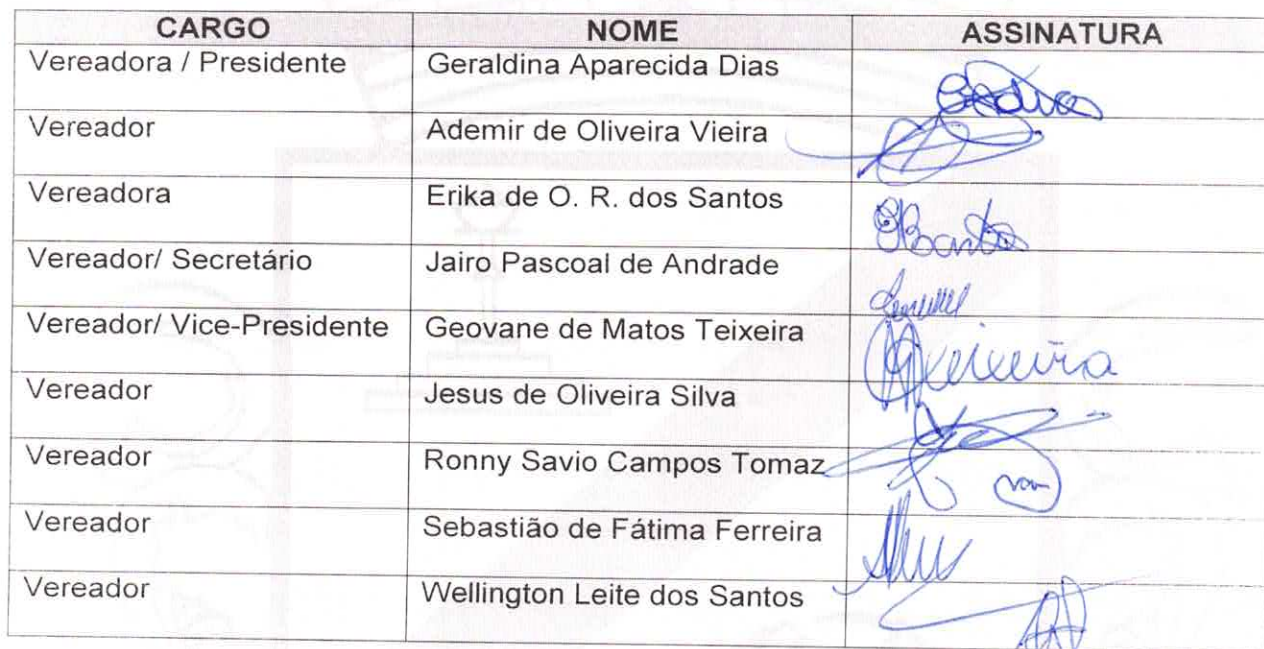 CARGO NOME ASSINATURA
Vereadora / Presidente Geraldina Aparecida Dias
Vereador Ademir de Oliveira Vieira
Vereadora Erika de O. R. dos Santos
Vereador/ Secretário Jairo Pascoal de Andrade
Vereador/ Vice-Presidente Geovane de Matos Teixeira
Vereador Jesus de Oliveira Silva
Vereador Ronny Savio Campos Tomaz
Vereador Sebastião de Fátima Ferreira
Vereador Wellington Leite dos Santos